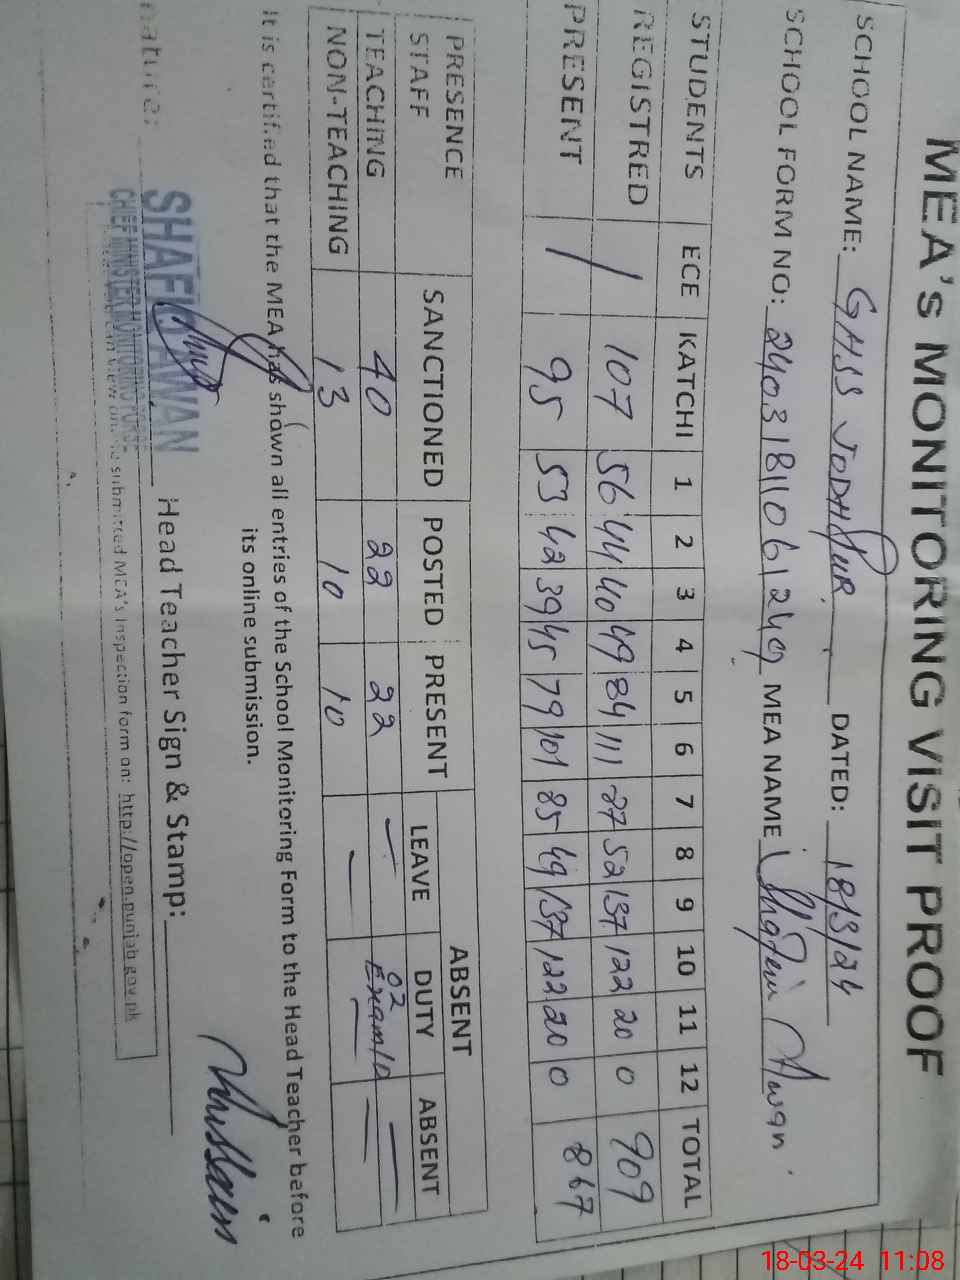 MEA'S MONITORING VISIT PROOF
SCHOOL NAME: GHSS JODHPUR DATED: 18/3/24
SCHOOL FORM NO: MEA NAME Shafiu Awan
STUDENTS ECE KATCHI 1 2 3 4 5 6 7 8 9 10 11 12 TOTAL
REGISTRED / 107 56 44 40 49 84 111 52 137 122 20 0 909
PRESENT / 95 53 42 39 45 79 101 85 49 137 122 20 0 867
PRESENCE SANCTIONED POSTED PRESENT ABSENT
STAFF LEAVE DUTY ABSENT
TEACHING 40 22 22 — 02 Exam —
NON-TEACHING 13 10 10 — — —
It is certified that the MEA has shown all entries of the School Monitoring Form to the Head Teacher before
its online submission.
nature: Head Teacher Sign & Stamp:
AWAN
CHIEF MINISTER MONITORING FORCE
can view online submitted MEA's Inspection form on: http://open.punjab.gov.pk
18-03-24 11:08